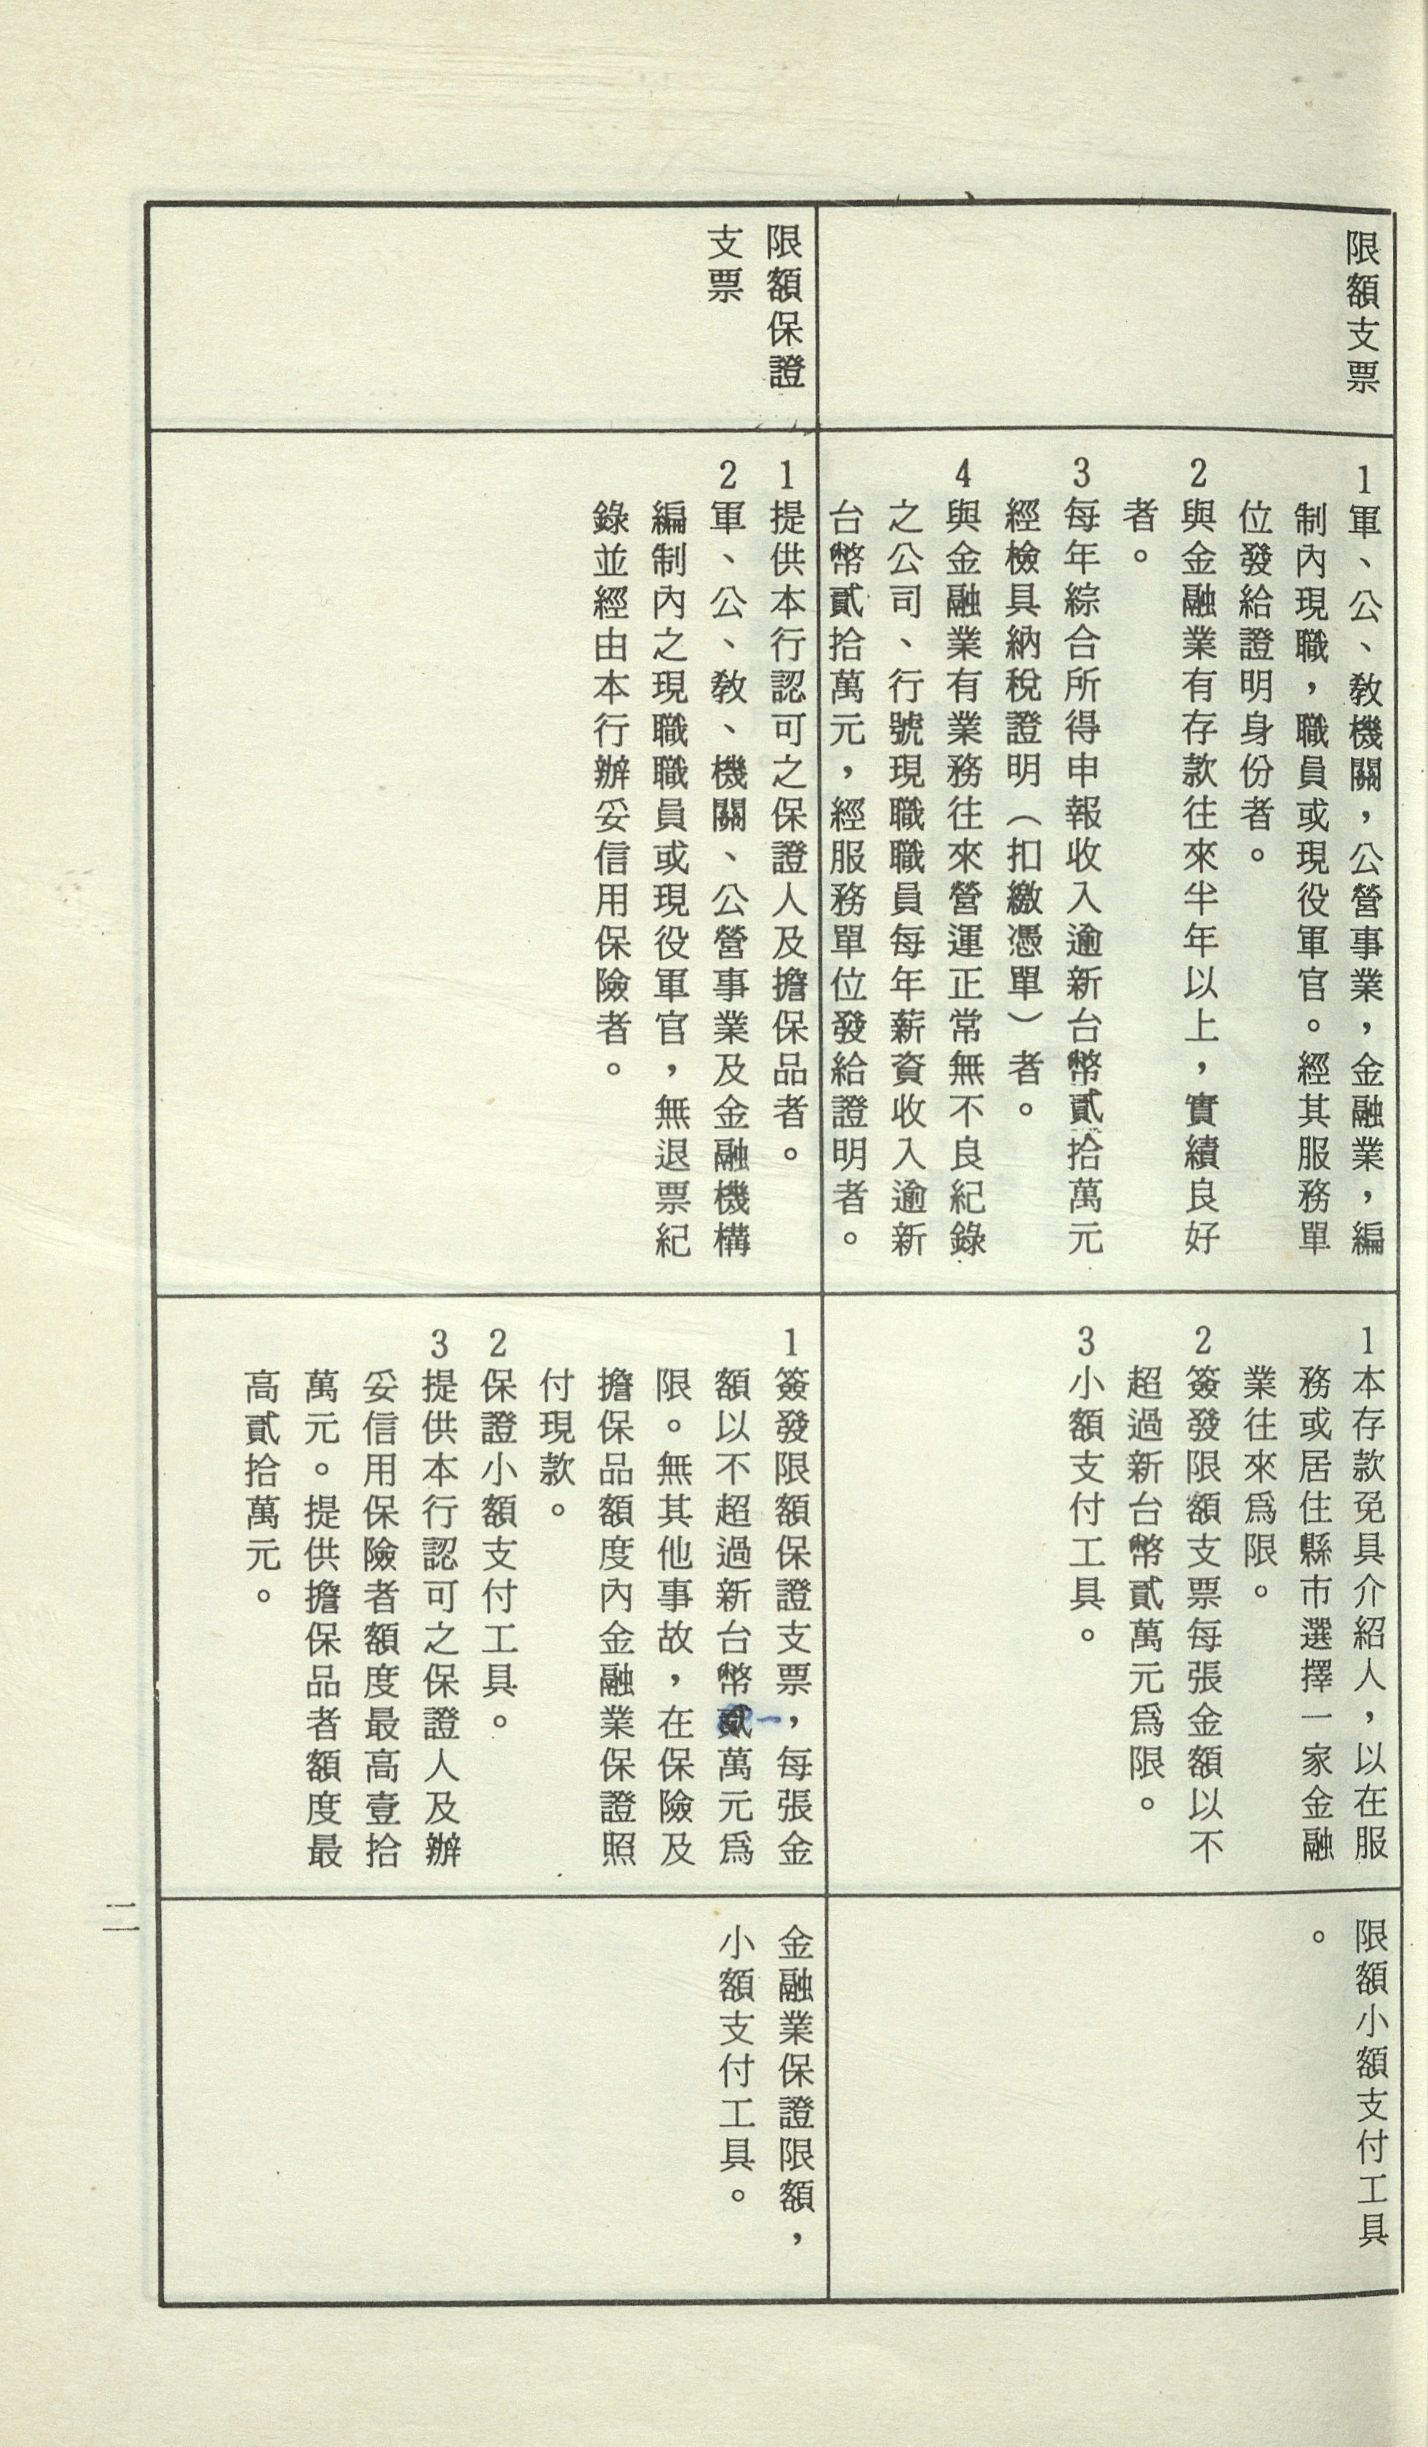 限額支票
1軍、公、教機關，公營事業，金融業，編
制內現職，職員或現役軍官。經其服務單
位發給證明身份者。
2與金融業有存款往來半年以上，實績良好
者。
3每年綜合所得申報收入逾新台幣貳拾萬元
經檢具納稅證明（扣繳憑單）者。
4與金融業有業務往來營運正常無不良紀錄
之公司、行號現職職員每年薪資收入逾新
台幣貳拾萬元，經服務單位發給證明者。
1本存款免具介紹人，以在服
務或居住縣市選擇一家金融
業往來爲限。
2簽發限額支票每張金額以不
超過新台幣貳萬元爲限。
3小額支付工具。
限額小額支付工具
。
限額保證
支票
1提供本行認可之保證人及擔保品者。
2軍、公、教、機關、公營事業及金融機構
編制內之現職職員或現役軍官，無退票紀
錄並經由本行辦妥信用保險者。
1簽發限額保證支票，每張金
額以不超過新台幣一萬元爲
限。無其他事故，在保險及
擔保品額度內金融業保證照
付現款。
2保證小額支付工具。
3提供本行認可之保證人及辦
妥信用保險者額度最高壹拾
萬元。提供擔保品者額度最
高貳拾萬元。
金融業保證限額，
小額支付工具。
二